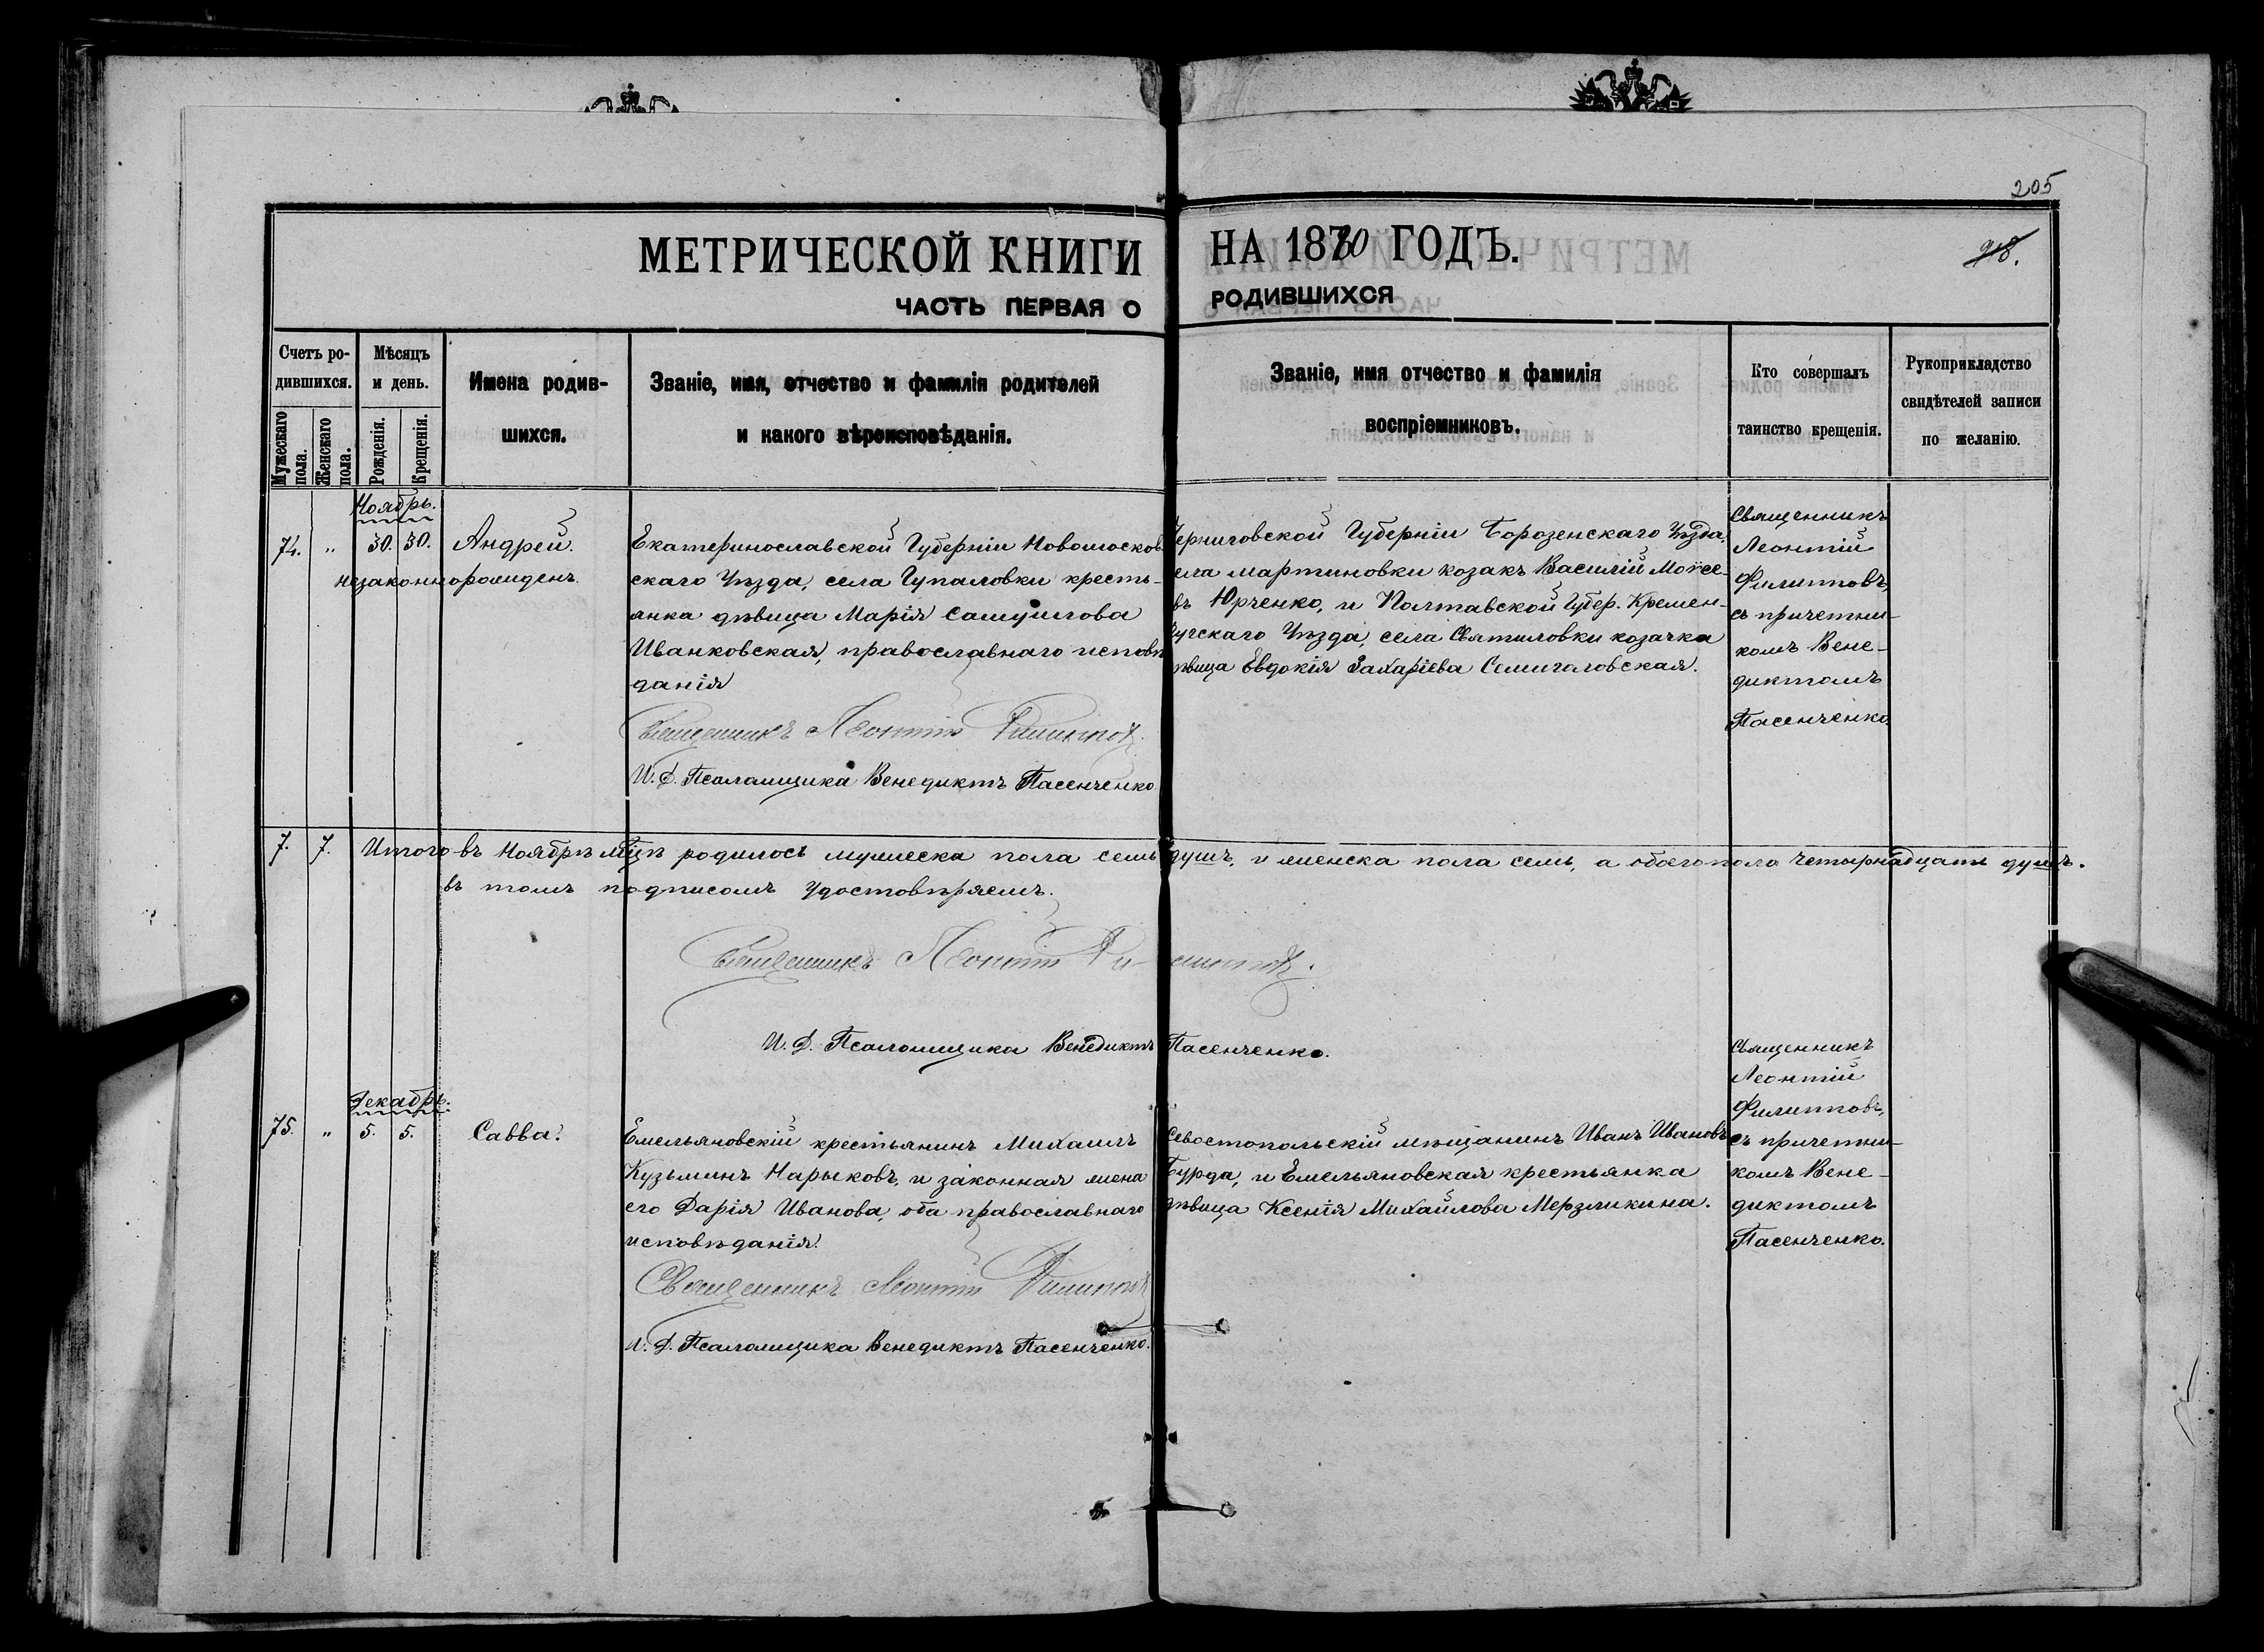 205
МЕТРИЧЕСКОЙ КНИГИ НА 1880 ГОДЪ.
918.
ЧАСТЬ ПЕРВАЯ О РОДИВШИХСЯ
Счетъ ро-
дившихся.
Мужескаго
пола.
Женскаго
пола.
Мѣсяцъ
и день.
Рожденія.
Крещенія.
Имена родив-
шихся.
Званіе, имя, отчество и фамилія родителей
и какого вѣроисповѣданія.
Званіе, имя отчество и фамилія
воспріемниковъ.
Кто совершалъ
таинство крещенія.
Рукоприкладство
свидѣтелей записи
по желанію.
Ноябрь.
74. " 30. 30. Андрей.
незаконнорожденъ.
Екатеринославской Губерніи Новомосков-
скаго Уѣзда, села Гупаловки кресть-
янка дѣвица Марія Самуилова
Иванковская, православнаго исповѣ
данія
Священникъ Леонтій Филипповъ.
И. Д. Псаломщика Венедиктъ Пасенченко.
Черниговской Губерніи Борозенскаго Уѣзда,
села мартиновки козакъ Василій Моѵсе-
въ Юрченко, и Полтавской Губер. Кремен-
чугскаго Уѣзда, села Святиловки козачка
дѣвица Евдокія Захаріева Семигаловская.
Священникъ
Леонтій
Филипповъ,
съ причетни-
комъ Вене-
диктомъ
Пасенченко.
7. 7. Итого въ Ноябрѣ мѣцѣ родилось мужеска пола семь душъ, и женска пола семь, а обоего пола четырнадцать душъ.
въ томъ подписомъ удостовѣряемъ.
Священникъ Леонтій Филипповъ.
И. Д. Псаломщика Венедиктъ Пасенченко.
Декабрь.
75. " 5. 5. Савва.
Емельяновскій крестьянинъ Михаилъ
Кузьминъ Нарыковъ, и законная жена
его Дарія Иванова, оба православнаго
исповѣданія.
Священникъ Леонтій Филипповъ
И. Д. Псаломщика Венедиктъ Пасенченко.
Севостопольскій мѣщанинъ Иванъ Ивановъ
Бурда, и Емельяновская крестьянка
дѣвица Ксенія Михайлова Мерзликина.
Священникъ
Леонтій
Филипповъ,
съ причетни-
комъ Вене-
диктомъ
Пасенченко.